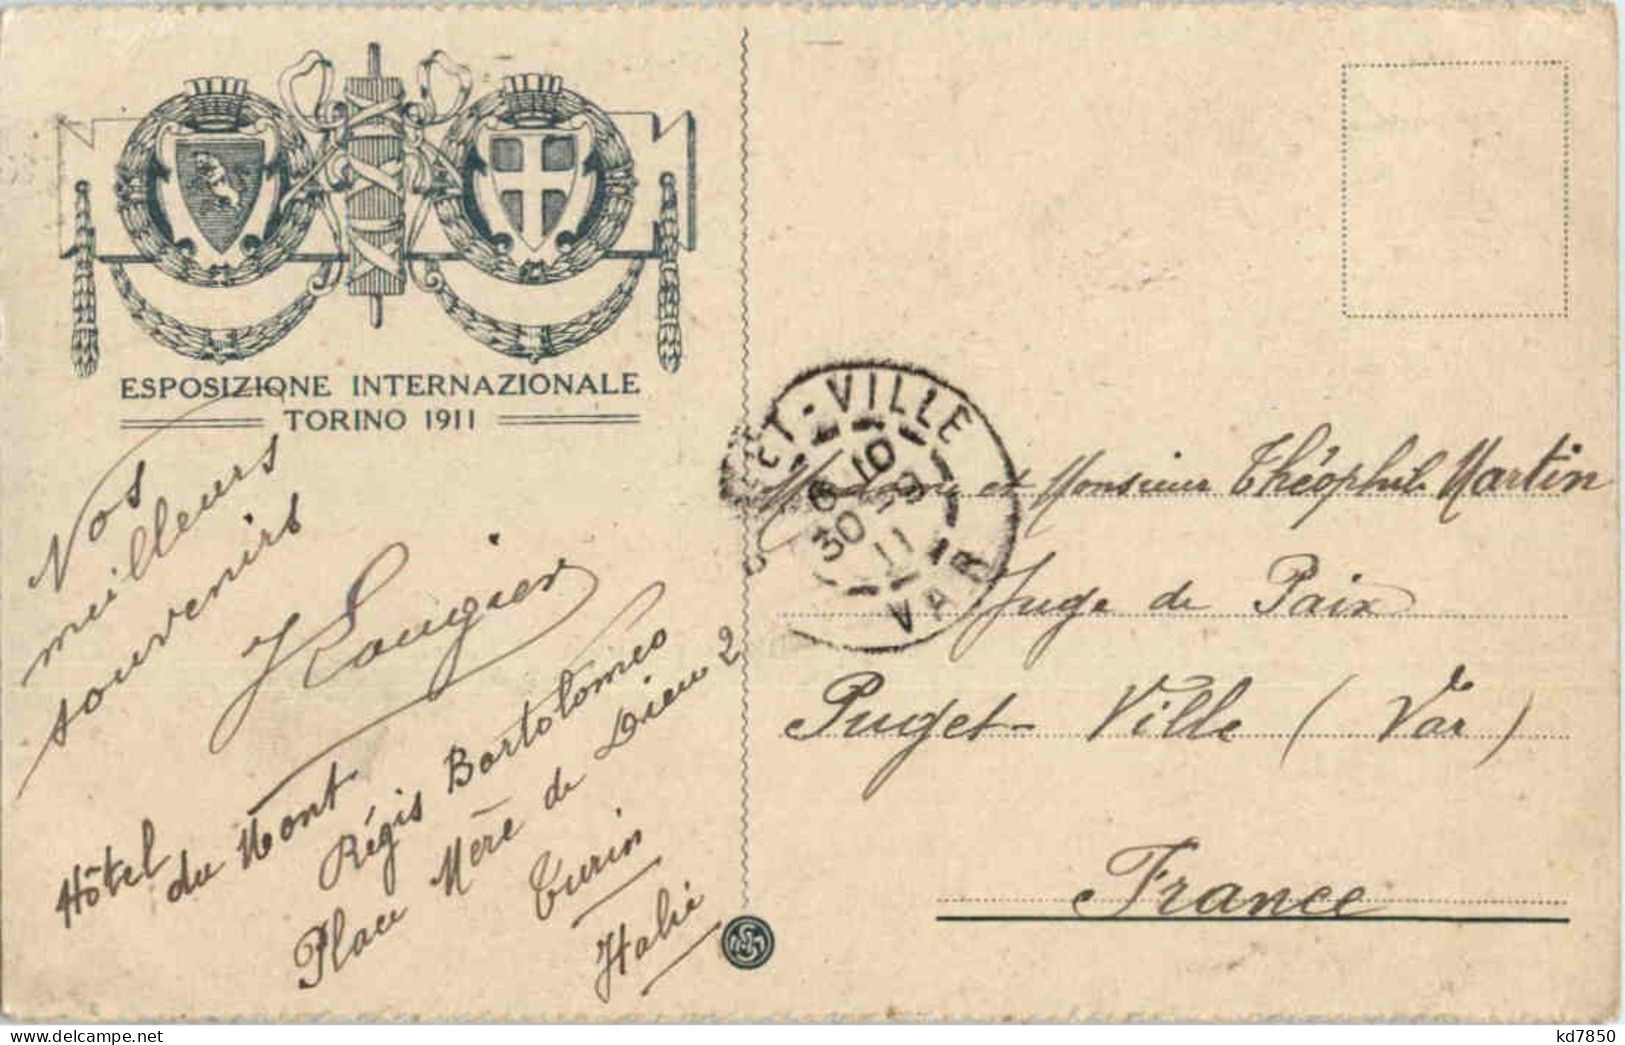 ESPOSIZIONE INTERNAZIONALE
TORINO 1911
Nos
meilleurs
souvenirs
J Laugier
Hôtel
du Mont
Régis Bartolomeo
Place Mère de Dieu 2
Turin
Italie
ET-VILLE
10
30
11
VAR
Madame et Monsieur Théophile Martin
Juge de Paix
Puget-Ville (Var)
France
kd7850